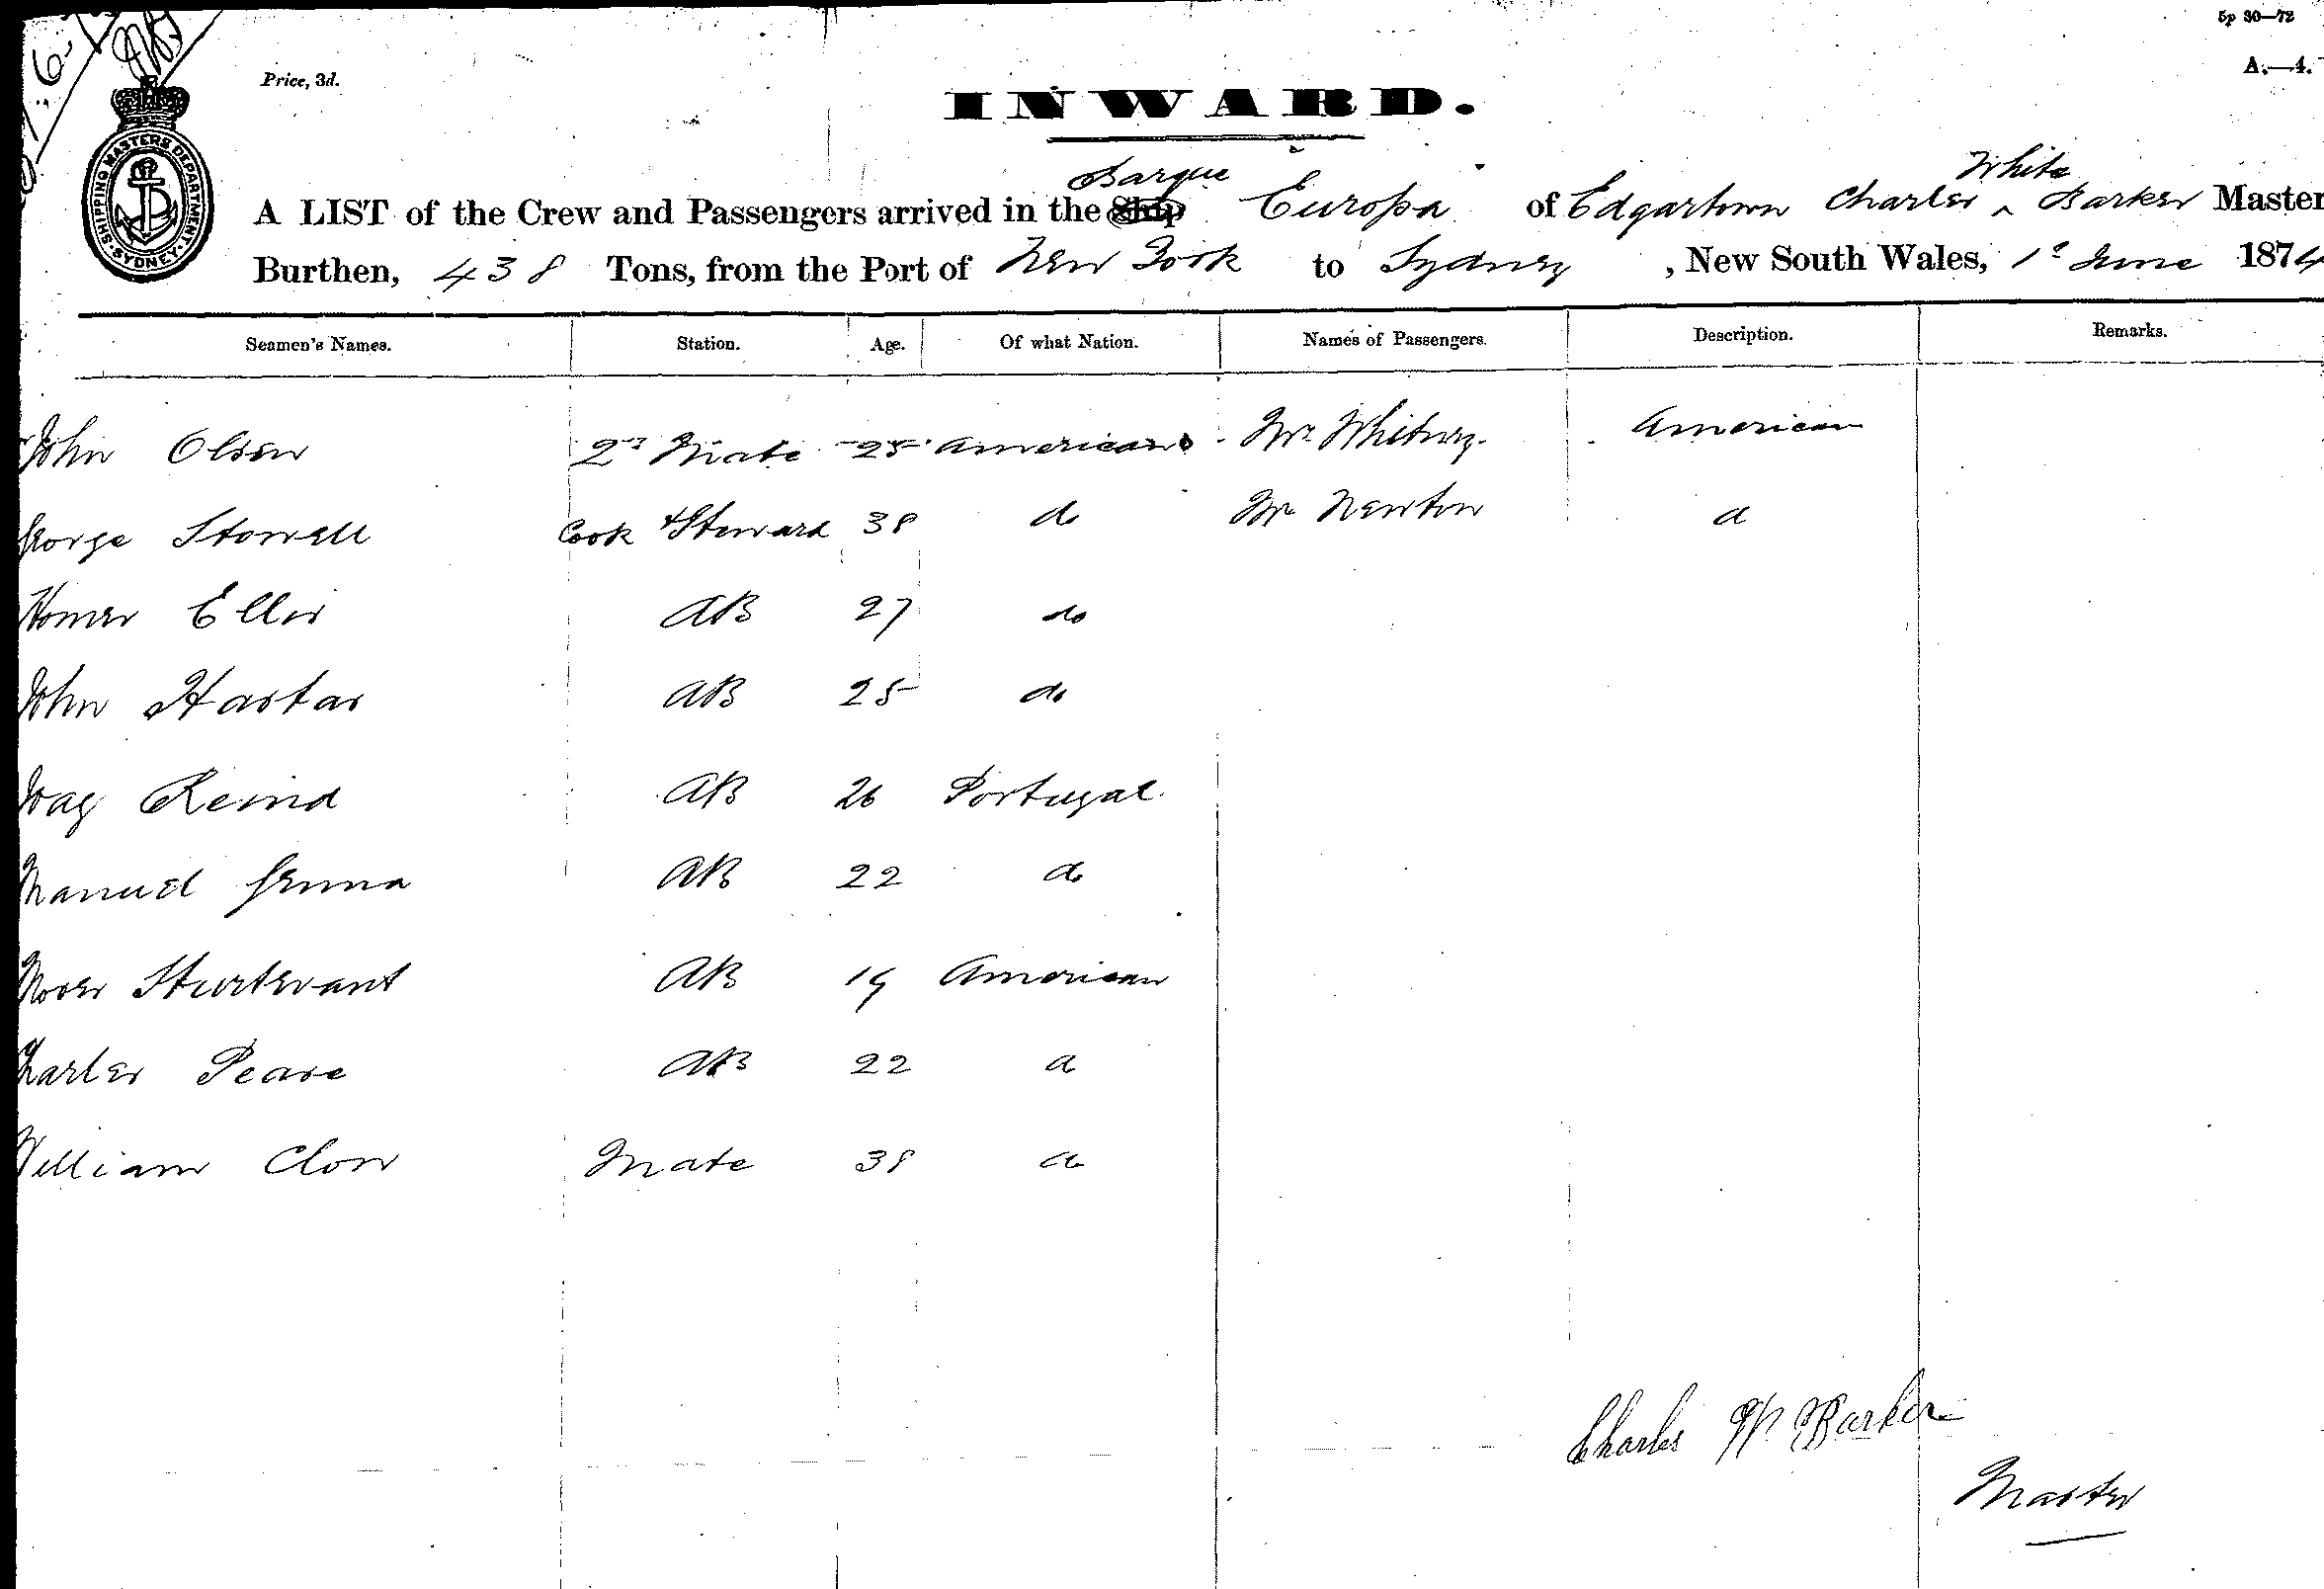 5p 30—72
A.—4.
Price, 3d.
INWARD.
SHIPPING MASTERS DEPARTMENT SYDNEY
Barque White
A LIST of the Crew and Passengers arrived in the Ship Europa of Edgartown Charles ^ Barker Master
Burthen, 438 Tons, from the Port of New York to Sydney, New South Wales, 1st June 1874
Seamen's Names. Station. Age. Of what Nation. Names of Passengers. Description. Remarks.
John Olsen 2nd Mate 25 American Mr Whitney American
George Stowell Cook & Steward 38 do Mr Newton do
Homer Ellis AB 27 do
John Hastas AB 25 do
AB 26 Portugal
Manuel AB 22 do
Moses Sturtevant AB 19 American
Charles Pease AB 22 do
William Clow Mate 38 do
Charles W. Barker
Master